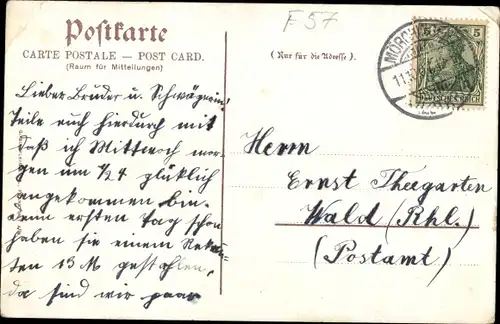 F 57
Postkarte
CARTE POSTALE — POST CARD.
(Raum für Mitteilungen)
(Nur für die Adresse).
MÖRCH
11.1
5 5
DEUTSCHES REICH
Lieber Bruder u. Schwägerin!
Teile euch hierdurch mit
daß ich Mittwoch mor-
gen um 1/2 4 glücklich
angekommen bin.
denn ersten Tag schon
haben sie einem Rekru-
ten 13 M gestohlen,
da sind wir paar
Herrn
Ernst Theegarten
Wald (Rhl.)
(Postamt)